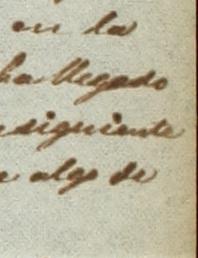 en la
ha llegado
siguiente
algo de